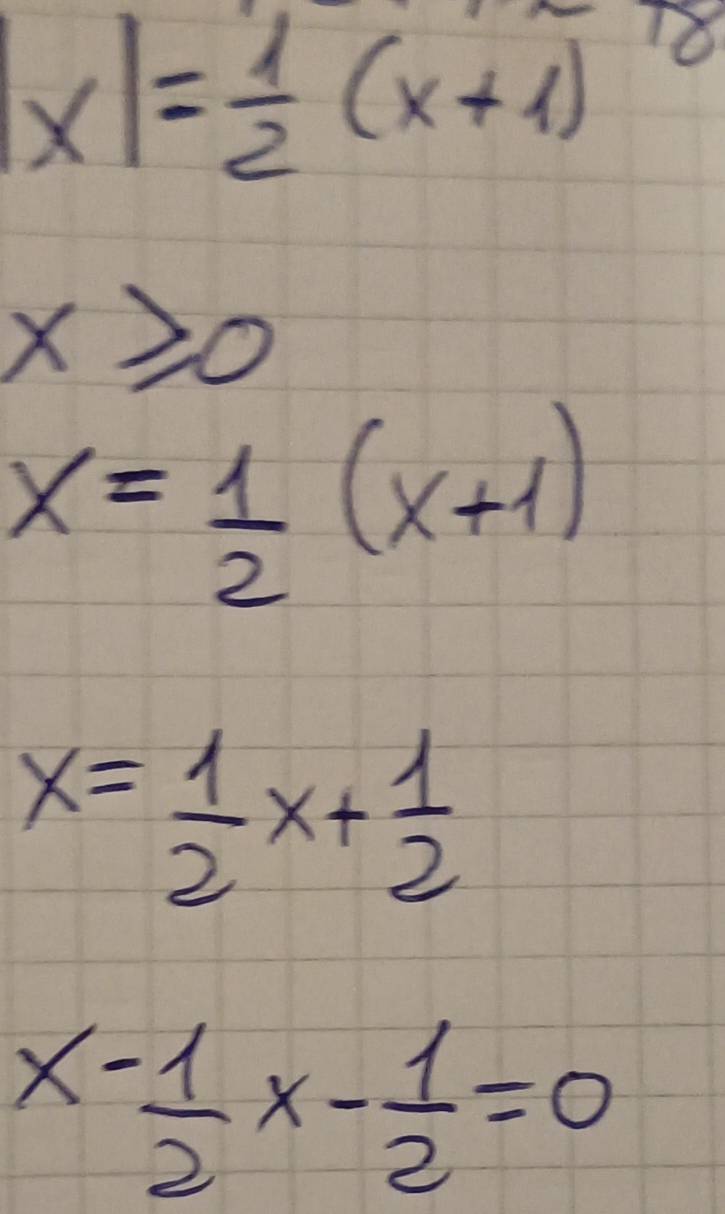 |x|=1/2 (x+1)
x ⩾0
x=1/2 (x+1)
x=1/2x+1/2
x-1/2x-1/2=0